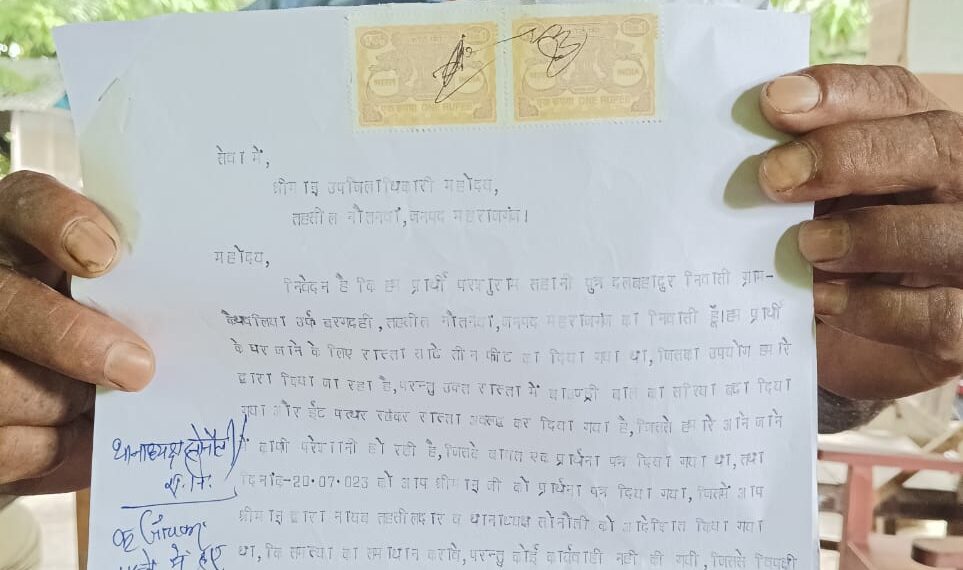 एक रुपया ONE RUPEE
INDIA
एक रुपया ONE RUPEE
सेवा में,
श्रीमान् उपजिलाधिकारी महोदय,
तहसील नौतनवां, जनपद महराजगंज।
महोदय,
निवेदन है कि हम प्रार्थी परशुराम सहानी पुत्र दलबहादुर निवासी ग्राम-
उर्फ बरगदही, तहसील नौतनवां, जनपद महराजगंज का निवासी हूँ। हम प्रार्थी
के घर जाने के लिए रास्ता साढे तीन फीट का दिया गया था, जिसका उपयोग हमारे
द्वारा किया जा रहा है, परन्तु उक्त रास्ता में बाउण्ड्री वाल का सरिया बढा दिया
गया और ईट पत्थर रखकर रास्ता अवरूद्ध कर दिया गया है, जिससे हमारे आने जाने
में काफी परेशानी हो रही है, जिसके बाबत एक प्रार्थना पत्र दिया गया था, तथा
दिनांक-20.07.023 को आप श्रीमान् जी को प्रार्थना पत्र दिया गया, जिसमें आप
श्रीमान् द्वारा नायब तहसीलदार व थानाध्यक्ष सोनौली को आदेशित किया गया
था, कि समस्या का समाधान करावे, परन्तु कोई कार्यवाही नही की गयी, जिससे विपक्षी
थानाध्यक्ष सोनौली
रा. नि.